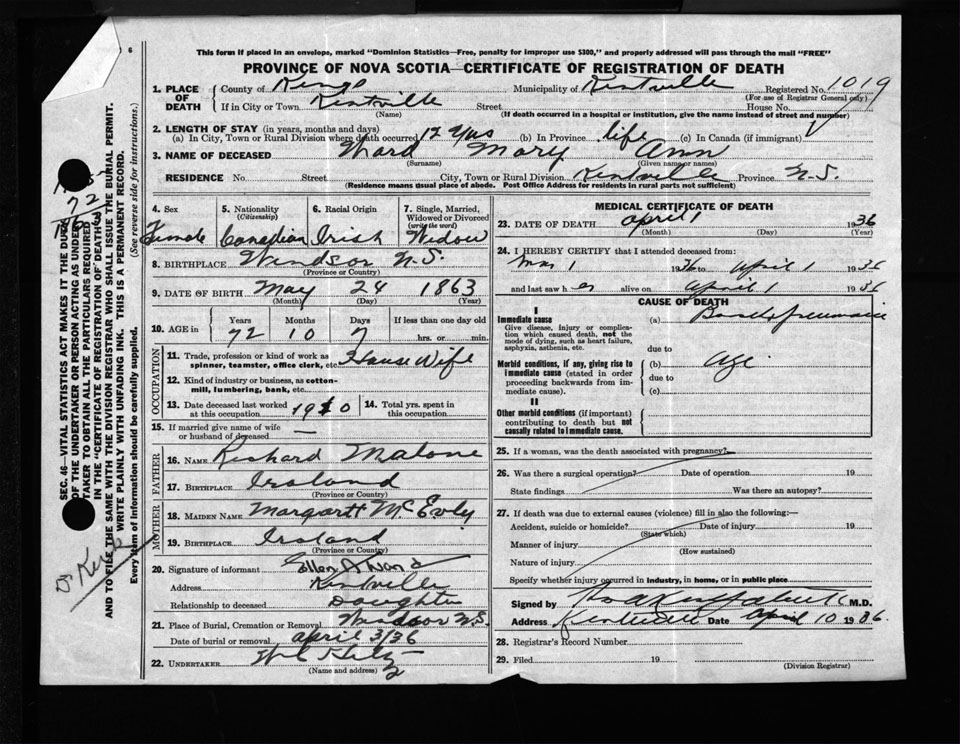 6
This form if placed in an envelope, marked "Dominion Statistics—Free, penalty for improper use $300," and properly addressed will pass through the mail "FREE"
PROVINCE OF NOVA SCOTIA—CERTIFICATE OF REGISTRATION OF DEATH
1. PLACE OF DEATH
County of Kings Municipality of Kentville Registered No. 1019
(For use of Registrar General only)
If in City or Town Kentville Street House No.
(Name) (If death occurred in a hospital or institution, give the name instead of street and number)
2. LENGTH OF STAY (in years, months and days)
(a) In City, Town or Rural Division where death occurred 12 yrs (b) In Province life (c) In Canada (if immigrant)
3. NAME OF DECEASED Ward Mary Ann
(Surname) (Given name or names)
RESIDENCE No. Street City, Town or Rural Division Kentville Province N.S.
(Residence means usual place of abode. Post Office Address for residents in rural parts not sufficient)
4. Sex Female
5. Nationality (Citizenship) Canadian
6. Racial Origin Irish
7. Single, Married, Widowed or Divorced (write the word) Widow
8. BIRTHPLACE Windsor N.S.
(Province or Country)
9. DATE OF BIRTH May 24 1863
(Month) (Day) (Year)
10. AGE in Years 72 Months 10 Days 7 If less than one day old hrs. or min.
OCCUPATION
11. Trade, profession or kind of work as spinner, teamster, office clerk, etc. House Wife
12. Kind of industry or business, as cotton-mill, lumbering, bank, etc.
13. Date deceased last worked at this occupation 19
14. Total yrs. spent in this occupation
15. If married give name of wife or husband of deceased —
FATHER
16. NAME Richard Malone
17. BIRTHPLACE Ireland
(Province or Country)
MOTHER
18. MAIDEN NAME Margarett
19. BIRTHPLACE Ireland
(Province or Country)
20. Signature of informant Ellen A Ward
Address Kentville
Relationship to deceased Daughter
21. Place of Burial, Cremation or Removal Windsor N.S.
Date of burial or removal april 3/36
22. UNDERTAKER
(Name and address)
MEDICAL CERTIFICATE OF DEATH
23. DATE OF DEATH april 1 1936
(Month) (Day) (Year)
24. I HEREBY CERTIFY that I attended deceased from:
1 1936 to April 1 1936
and last saw her alive on April 1 1936
CAUSE OF DEATH
I
Immediate cause
Give disease, injury or complication which caused death, not the mode of dying, such as heart failure, asphyxia, asthenia, etc.
(a)
due to
Morbid conditions, if any, giving rise to immediate cause (stated in order proceeding backwards from immediate cause).
(b) Age
due to
(c)
II
Other morbid conditions (if important) contributing to death but not causally related to immediate cause.
25. If a woman, was the death associated with pregnancy?
26. Was there a surgical operation? Date of operation 19
State findings Was there an autopsy?
27. If death was due to external causes (violence) fill in also the following:—
Accident, suicide or homicide? Date of injury 19
(State which)
Manner of injury
(How sustained)
Nature of injury
Specify whether injury occurred in industry, in home, or in public place
Signed by M.D.
Address Kentville Date April 10 1936.
28. Registrar's Record Number
29. Filed 19
(Division Registrar)
SEC. 46—VITAL STATISTICS ACT MAKES IT THE DUTY
OF THE UNDERTAKER OR PERSON ACTING AS UNDER-
TAKER TO OBTAIN ALL THE PARTICULARS REQUIRED
IN THE "CERTIFICATE OF REGISTRATION OF DEATH"
AND TO FILE THE SAME WITH THE DIVISION REGISTRAR WHO SHALL ISSUE THE BURIAL PERMIT.
WRITE PLAINLY WITH UNFADING INK. THIS IS A PERMANENT RECORD.
Every item of information should be carefully supplied. (See reverse side for instructions.)
72